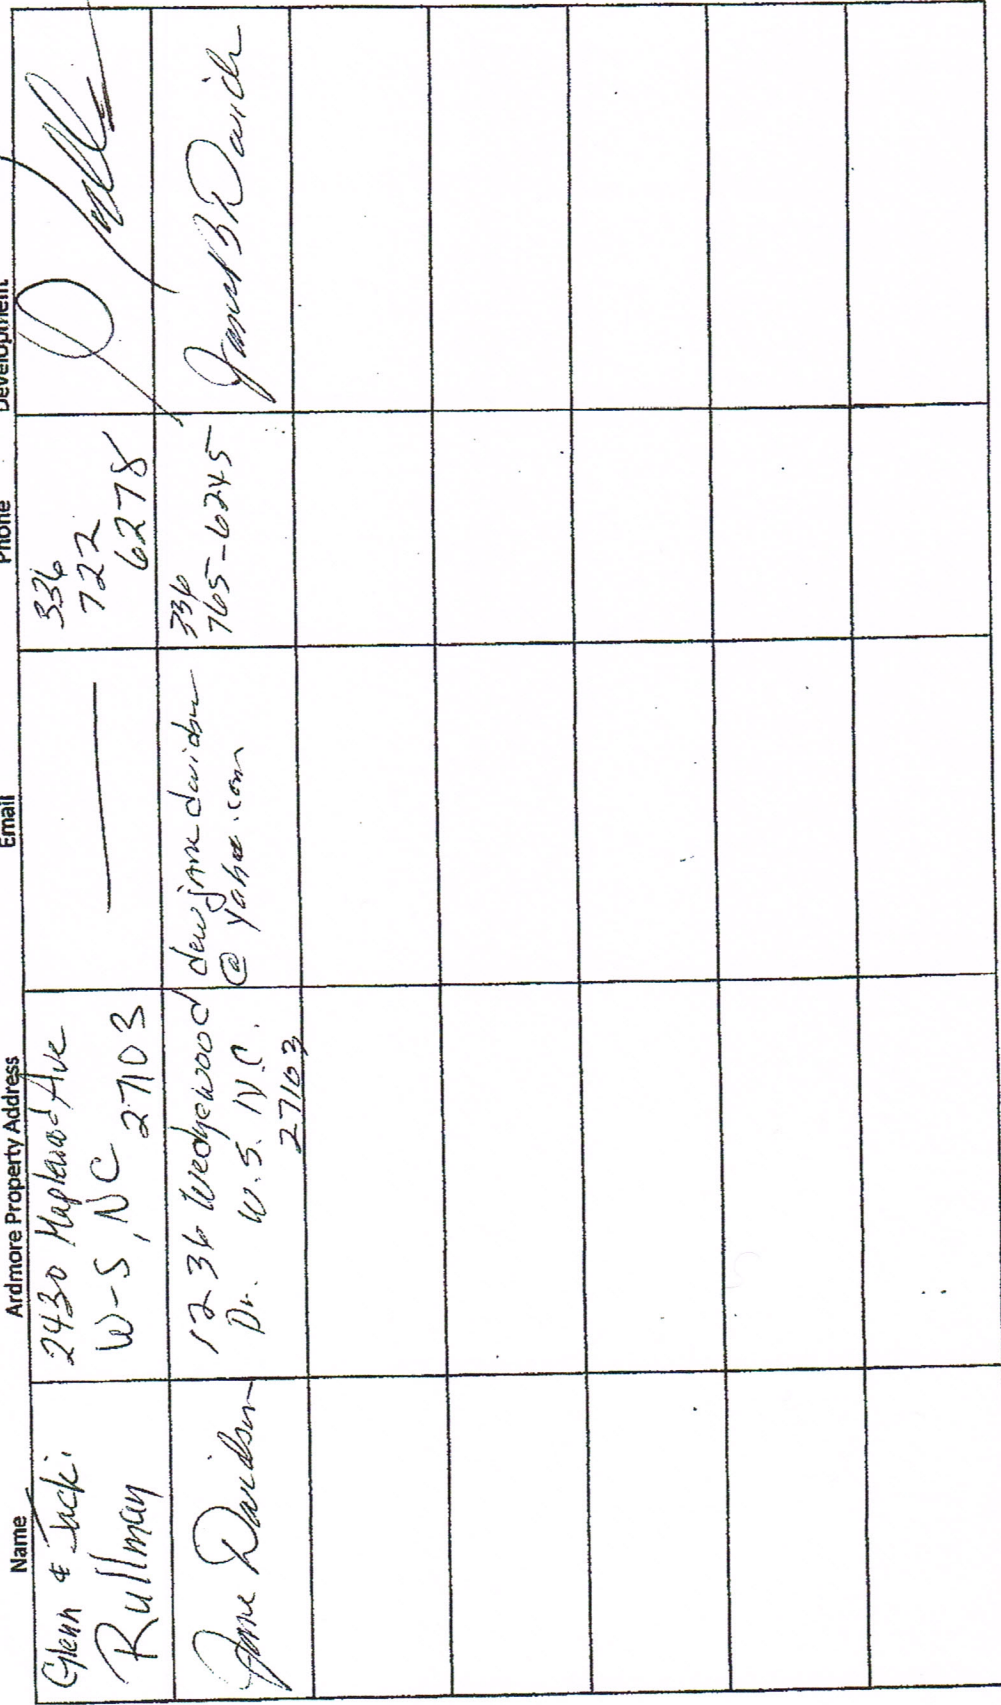 Name Ardmore Property Address Email Phone Development
Glenn & Jacki
Rullman
2430 Maplewood Ave
W-S, NC
27103
336
722
6278
Jane Davidson
1236 Wedgewood
Dr. W.S. N.C.
27103
@ yahoo.com
336
765-6245